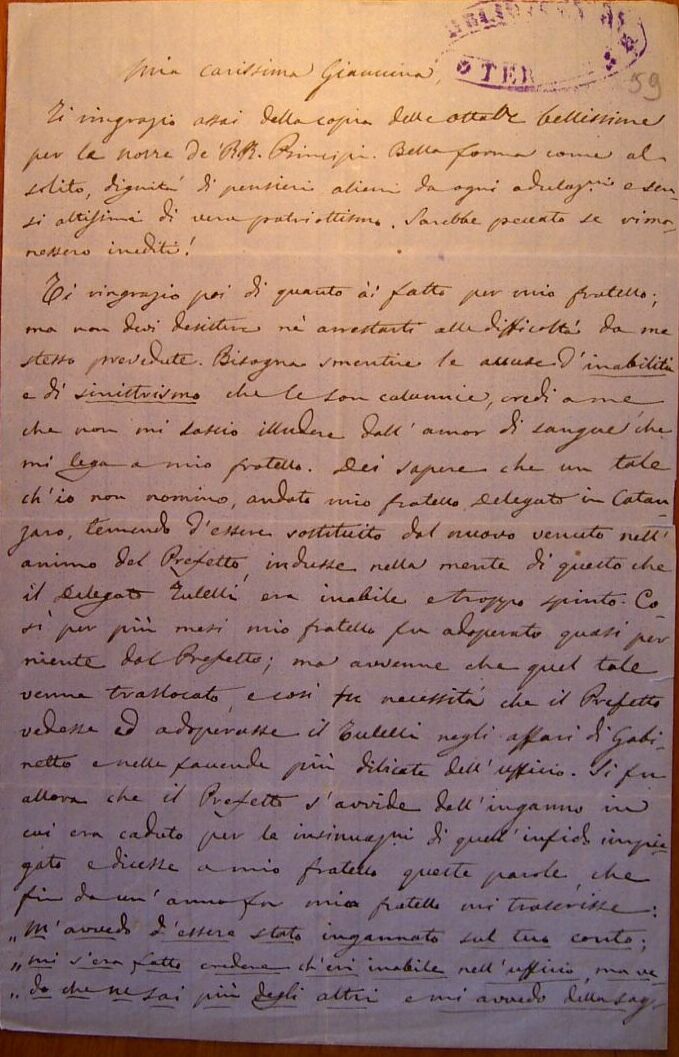 59
Mia carissima Giannina,
Ti ringrazio assai della copia delle ottave bellissime
per le nozze de' RR. Principi. Bella forma come al
solito, dignità di pensieri alieni da ogni adulazni e sen-
si altissimi di vero patriottismo. Sarebbe peccato se rima-
nessero inediti!
Ti ringrazio poi di quanto ài fatto per mio fratello;
ma non devi desistere nè arrestarti alle difficoltà da me
stesso prevedute. Bisogna smentire le accuse d'inabilità
e di sinistrismo che le son calunnie, credi a me
che non mi lascio illudere dall'amor di sangue che
mi lega a mio fratello. Dei sapere che un tale
ch'io non nomino, andato mio fratello Delegato in Catan-
zaro, temendo d'essere sostituito dal nuovo venuto nell'
animo del Prefetto, indusse nella mente di questo che
il Delegato Tulelli era inabile e troppo spinto. Co-
sì per più mesi mio fratello fu adoperato quasi per
niente dal Prefetto; ma avvenne che quel tale
venne traslocato, e così fu necessità che il Prefetto
vedesse ed adoperasse il Tulelli negli affari di Gabi-
netto e nelle faccende più dilicate dell'ufficio. Si fu
allora che il Prefetto s'avvide dell'inganno in
cui era caduto per le insinuazni di quell'infido impie-
gato e dicesse a mio fratello queste parole, che
fin da un'anno fu mio fratello mi trascrisse:
„M'avvedo d'essere stato ingannato sul tuo conto;
„mi s'era fatto credere ch'eri inabile nell'ufficio, ma ve-
„do che ne sai più degli altri e mi avvedo della sag-